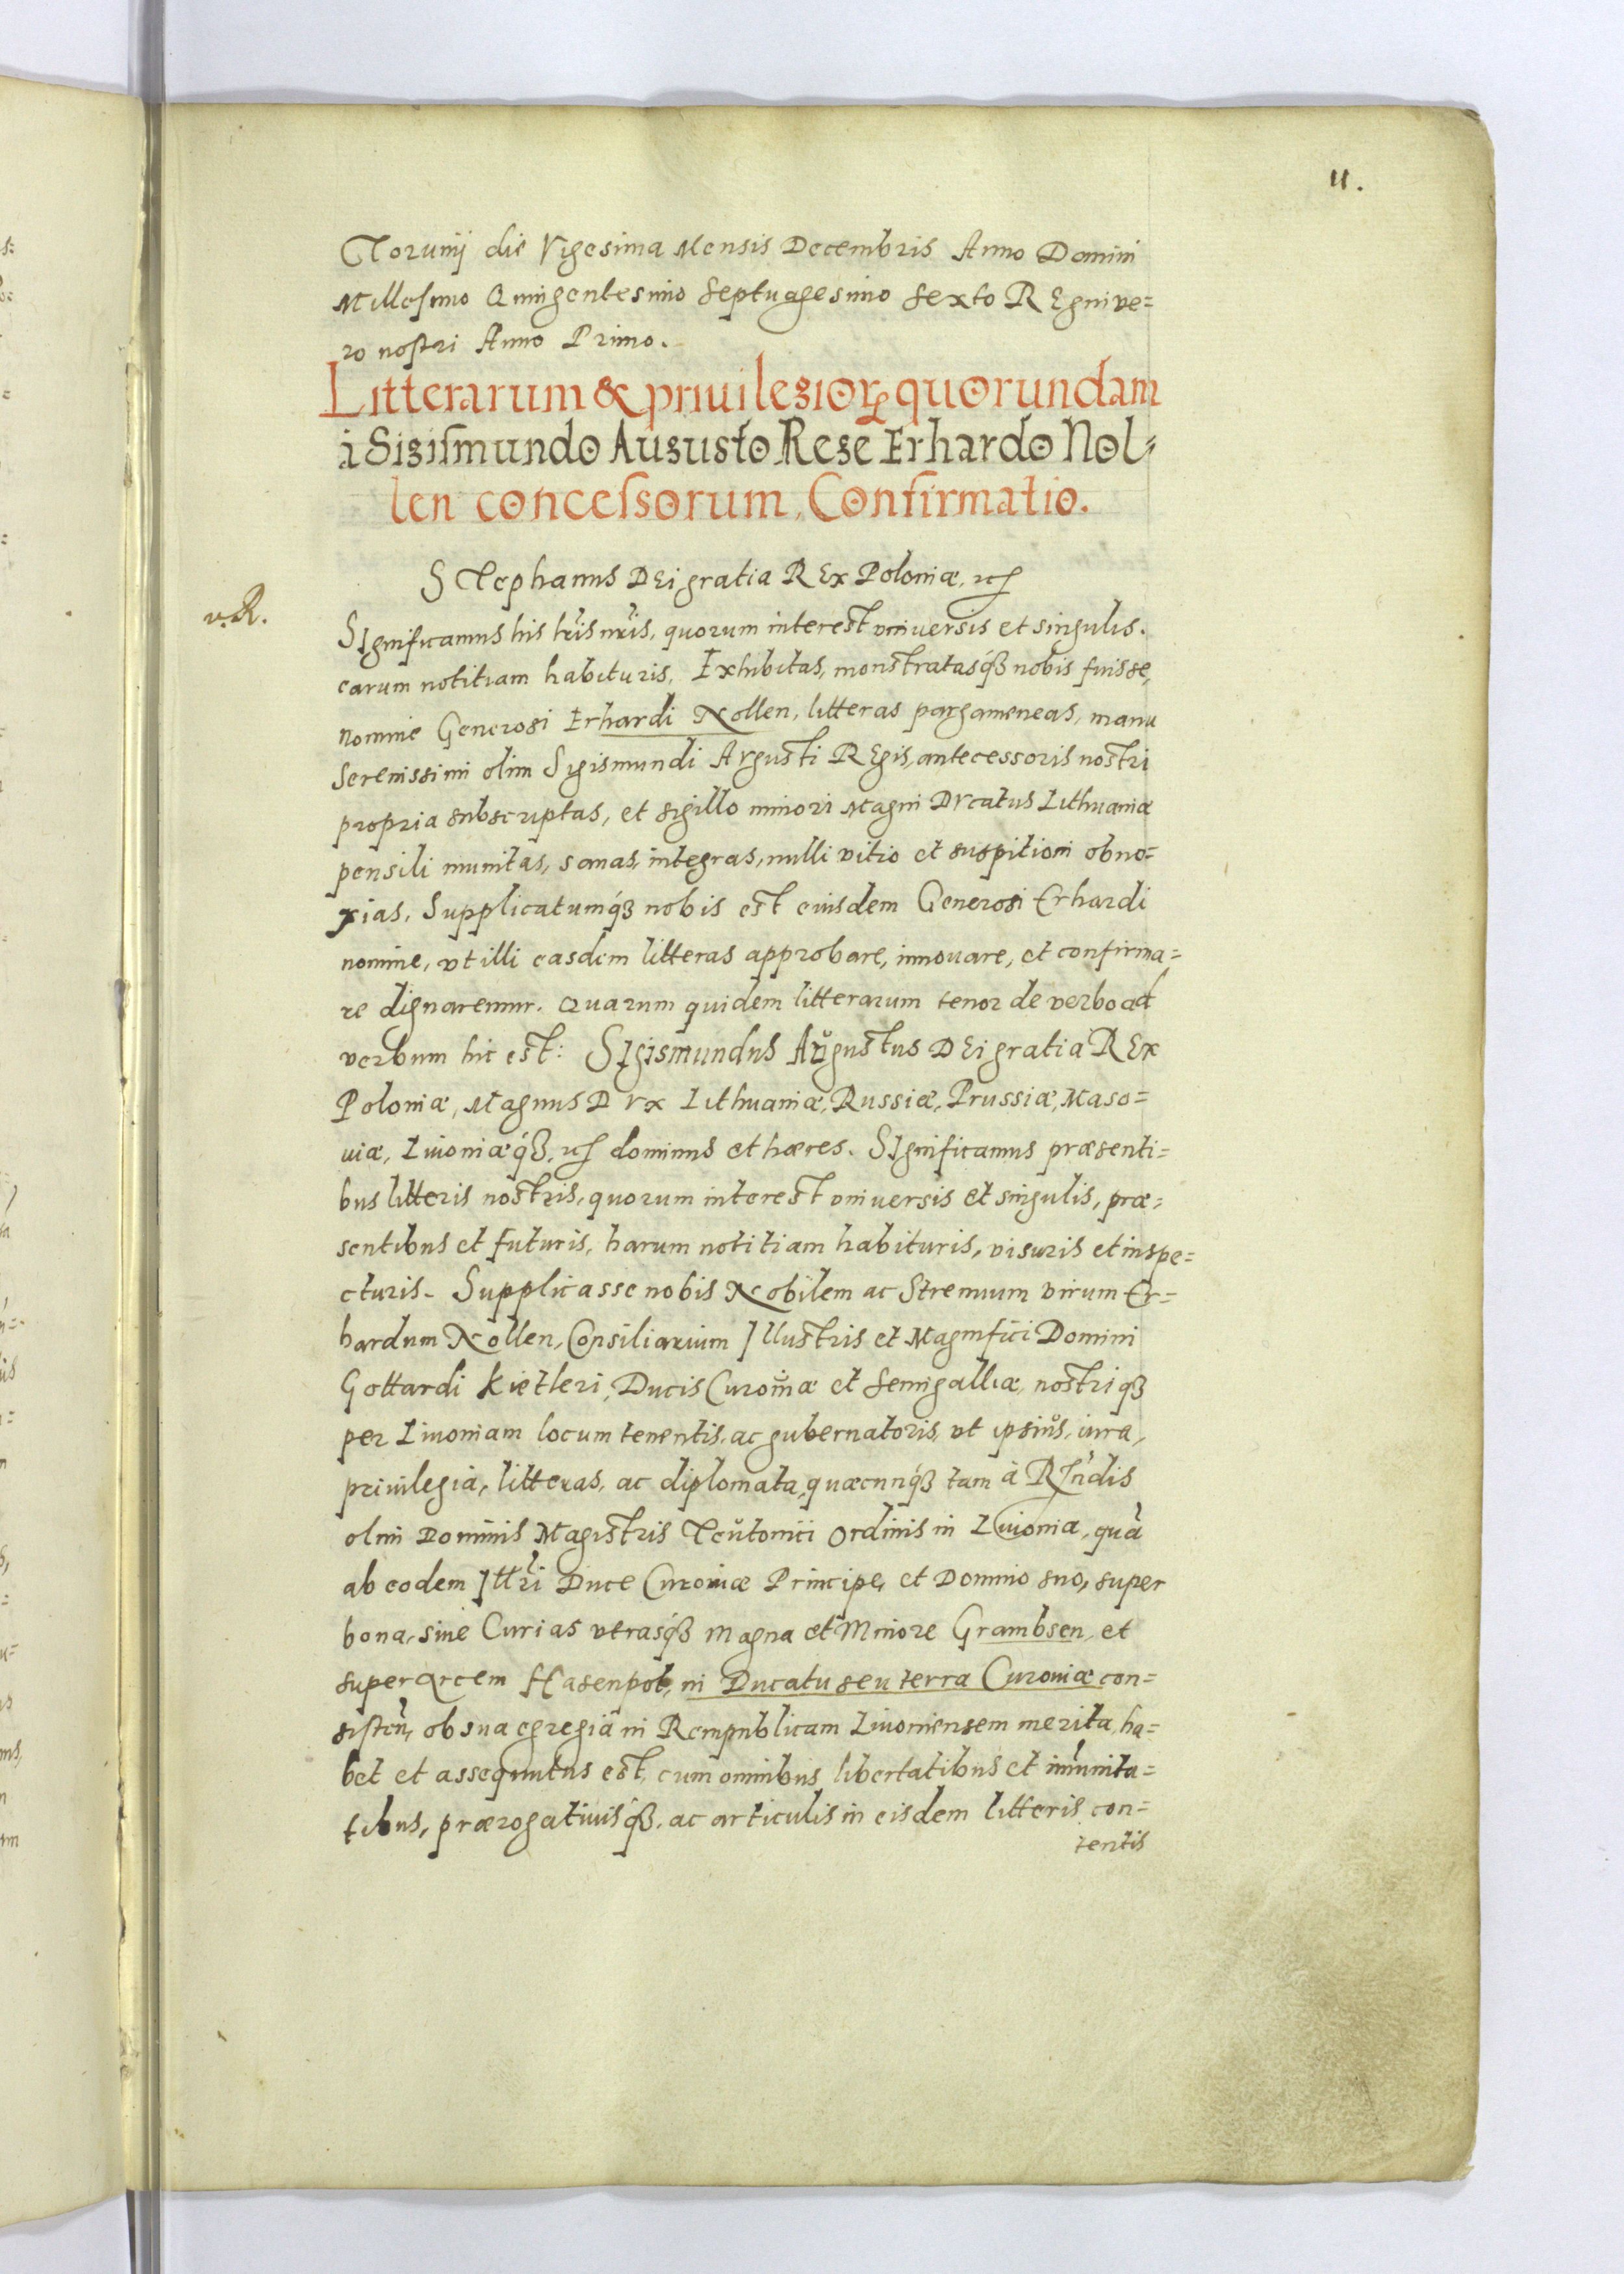 11.
Torunij die Vigesima Mensis Decembris Anno Domini
Millesimo Quingentesimo Septuagesimo Sexto REgni ve=
ro nostri Anno Primo.
Litterarum & priuilegioꝝ quorundam
à Sigismundo Augusto Rege Erhardo Nol=
len concessorum, Confirmatio.
STephanus DEi gratia REx Poloniæ, etc
v. R.
SIgnificamus his lr̃is nr̃is, quorum interest vniuersis et singulis.
earum notitiam habituris, Exhibitas, monstratasq́ꝫ nobis fuisse,
nomine Generosi Erhardi Nollen, litteras pargameneas, manu
Serenissimi olim Sigismundi AVgusti REgis, antecessoris nostri
propria subscriptas, et sigillo minori Magni DVcatus Lithuaniæ
pensili munitas, sanas, integras, nulli vitio et suspitioni obno=
xias, Supplicatumq́ꝫ nobis est eiusdem Generosi Erhardi
nomine, vt illi easdem litteras approbare, innouare, et confirma=
re dignaremur. Quarum quidem litterarum tenor de verbo ad
verbum hic est: SIgismundus Augustus DEi gratia REx
Poloniæ, Magnus DVx Lithuaniæ, Russiæ, Prussiæ, Maso=
uiæ, Liuoniæq́ꝫ, etc dominus et hæres. SIgnificamus præsenti=
bus litteris nostris, quorum interest vniuersis et singulis, præ=
sentibus et futuris, harum notitiam habituris, visuris et inspe=
cturis. Supplicasse nobis Nobilem ac Strenuum virum Er=
hardum Nollen, Consiliarium Illustris et Magnifici Domini
Gottardi Kietleri, Ducis Curoniæ et Semigalliæ, nostriq́ꝫ
per Liuoniam locum tenentis, ac gubernatoris, vt ipsius, iura,
priuilegia, litteras, ac diplomata, quæcunq́ꝫ tam à Rñdis
olim Dominis Magistris Teutonici Ordinis in Liuonia, quà
ab eodem Ittri Duce Curoniæ Principe, et Domino suo, super
bona, siue Curias vtrasq́ꝫ Magna et Minore Grambsen, et
super arcem Hasenpot, in Ducatu seu terra Curoniæ con=
sisteñ, ob sua egregia in Rempublicam Liuoniensem merita, ha=
bet et assequutus est, cum omnibus libertatibus et im̃unita=
tibus, prærogatiuisq́ꝫ, ac articulis in eisdem litteris con=
tentis